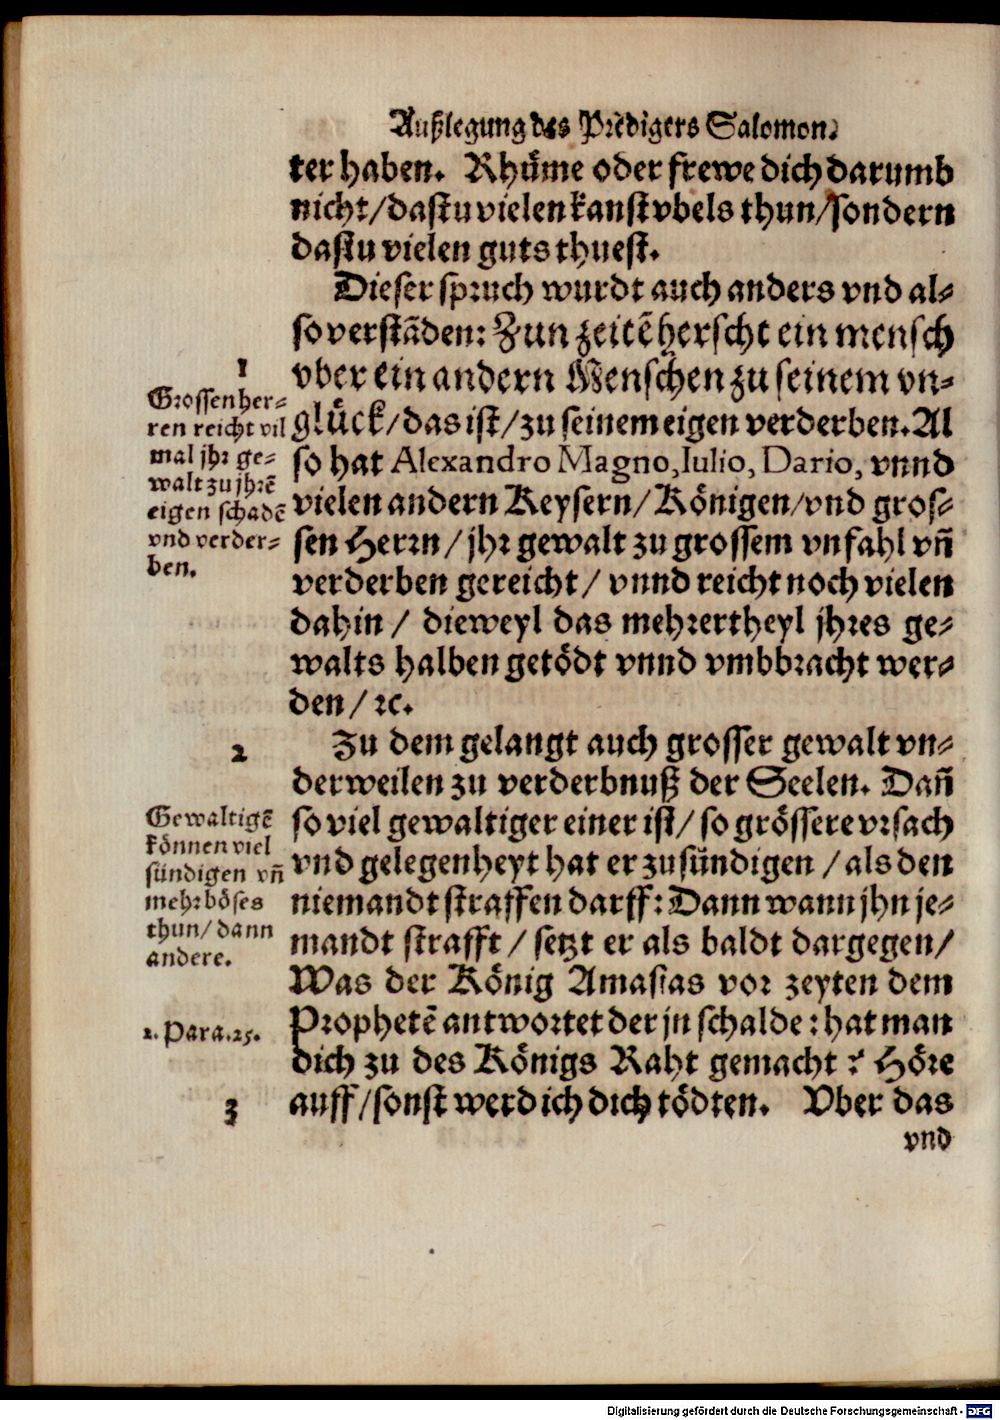 Außlegung des Predigers Salomon.
ter haben. Rhüme oder frewe dich darumb
nicht/dastu vielen kanst vbels thun/sondern
dastu vielen guts thuest.
Dieser spruch wurdt auch anders vnd al-
so verstãden: Zun zeitẽ herscht ein mensch
vber ein andern Menschen zu seinem vn-
glück/das ist/zu seinem eigen verderben. Al
so hat Alexandro Magno, Iulio, Dario, vnnd
vielen andern Keysern/Königen/vnd gros-
sen Herrn/jhr gewalt zu grossem vnfahl vñ
verderben gereicht/vnnd reicht noch vielen
dahin/dieweyl das mehrertheyl jhres ge-
walts halben getödt vnnd vmbbracht wer-
den/ꝛc.
1
Grossen her-
ren reicht vil
mal jhr ge-
walt zu jhrẽ
eigen schadẽ
vnd verder-
ben.
Zu dem gelangt auch grosser gewalt vn-
derweilen zu verderbnuß der Seelen. Dañ
so viel gewaltiger einer ist/so grössere vrsach
vnd gelegenheyt hat er zu sündigen/als den
niemandt straffen darff: Dann wann jhn je-
mandt strafft/setzt er als baldt dargegen/
Was der König Amasias vor zeyten dem
Prophetẽ antwortet der jn schalde: hat man
dich zu des Königs Raht gemacht? Höre
auff/sonst werd ich dich tödten. Vber das
2
Gewaltigẽ
können viel
sündigen vñ
mehr böses
thun/dann
andere.
2. Para.25.
3
vnd
Digitalisierung gefördert durch die Deutsche Forschungsgemeinschaft - DFG